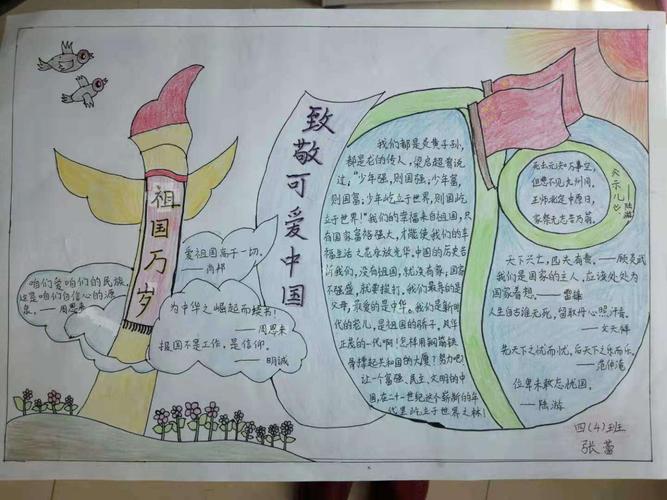 祖国万岁
致敬可爱中国
爱祖国高于一切。
——肖邦
咱们爱咱们的民族,
这是咱们自信心的源
泉。——周恩来
为中华之崛起而读书!
——周恩来
报国不是工作,是信仰。
——明诚
我们都是炎黄子孙,
都是龙的传人,梁启超曾说
过,“少年强,则国强;少年富,
则国富;少年屹立于世界,则国屹
立于世界!”我们的幸福来自祖国,只
有国家富裕强大,才能使我们的幸
福生活之花永放光华。中国的历史告
诉我们,没有祖国,就没有家,国家
不强盛,就要挨打。我们最亲的是
父母,最爱的是中华。我们是新时
代的花儿,是祖国的骄子,風华
正茂的一代啊!怎样用钢筋铁
骨撑起共和国的大厦?努力吧!
让一个富强、民主、文明的中
国,在二十一世纪这个崭新的年
代里屹立于世界之林!
示儿
——陆游
死去元知万事空,
但悲不见九州同。
王师北定中原日,
家祭无忘告乃翁。
天下兴亡,匹夫有责。——顾炎武
我们是国家的主人,应该处处为
国家着想。——雷锋
人生自古谁无死,留取丹心照汗青。
——文天祥
先天下之忧而忧,后天下之乐而乐。
——范仲淹
位卑未敢忘忧国。
——陆游
四(4)班
张蕾